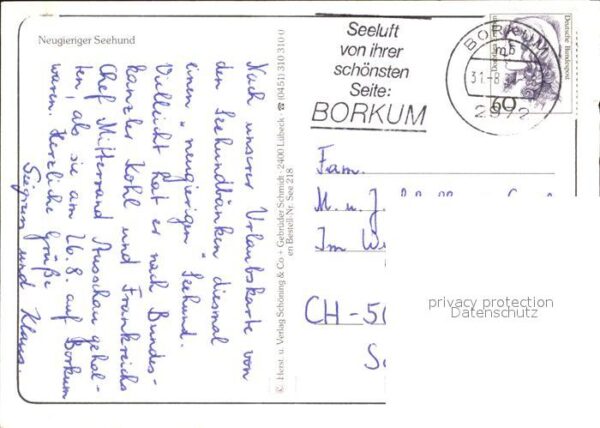 Neugieriger Seehund
Nach unserer Urlaubskarte von
den Seehundbänken diesmal
einen "neugierigen" Seehund.
Vielleicht hat er nach Bundes-
kanzler Kohl und Frankreichs
Chef Mitterrand Ausschau gehal-
ten, als sie am 26.8. auf Borkum
waren. Herzliche Grüße
Sigrun und Klaus.
© Horst u. Verlag Schöning & Co + Gebrüder Schmidt · 2400 Lübeck · ☎ (0451) 310 310 0
en Bestell-Nr. See 218
Seeluft
von ihrer
schönsten
Seite:
BORKUM
BORKUM
31.-8.
2972
Deutsche Bundespost
60
Fam.
M. u. J.
Im
CH-50
privacy protection
Datenschutz